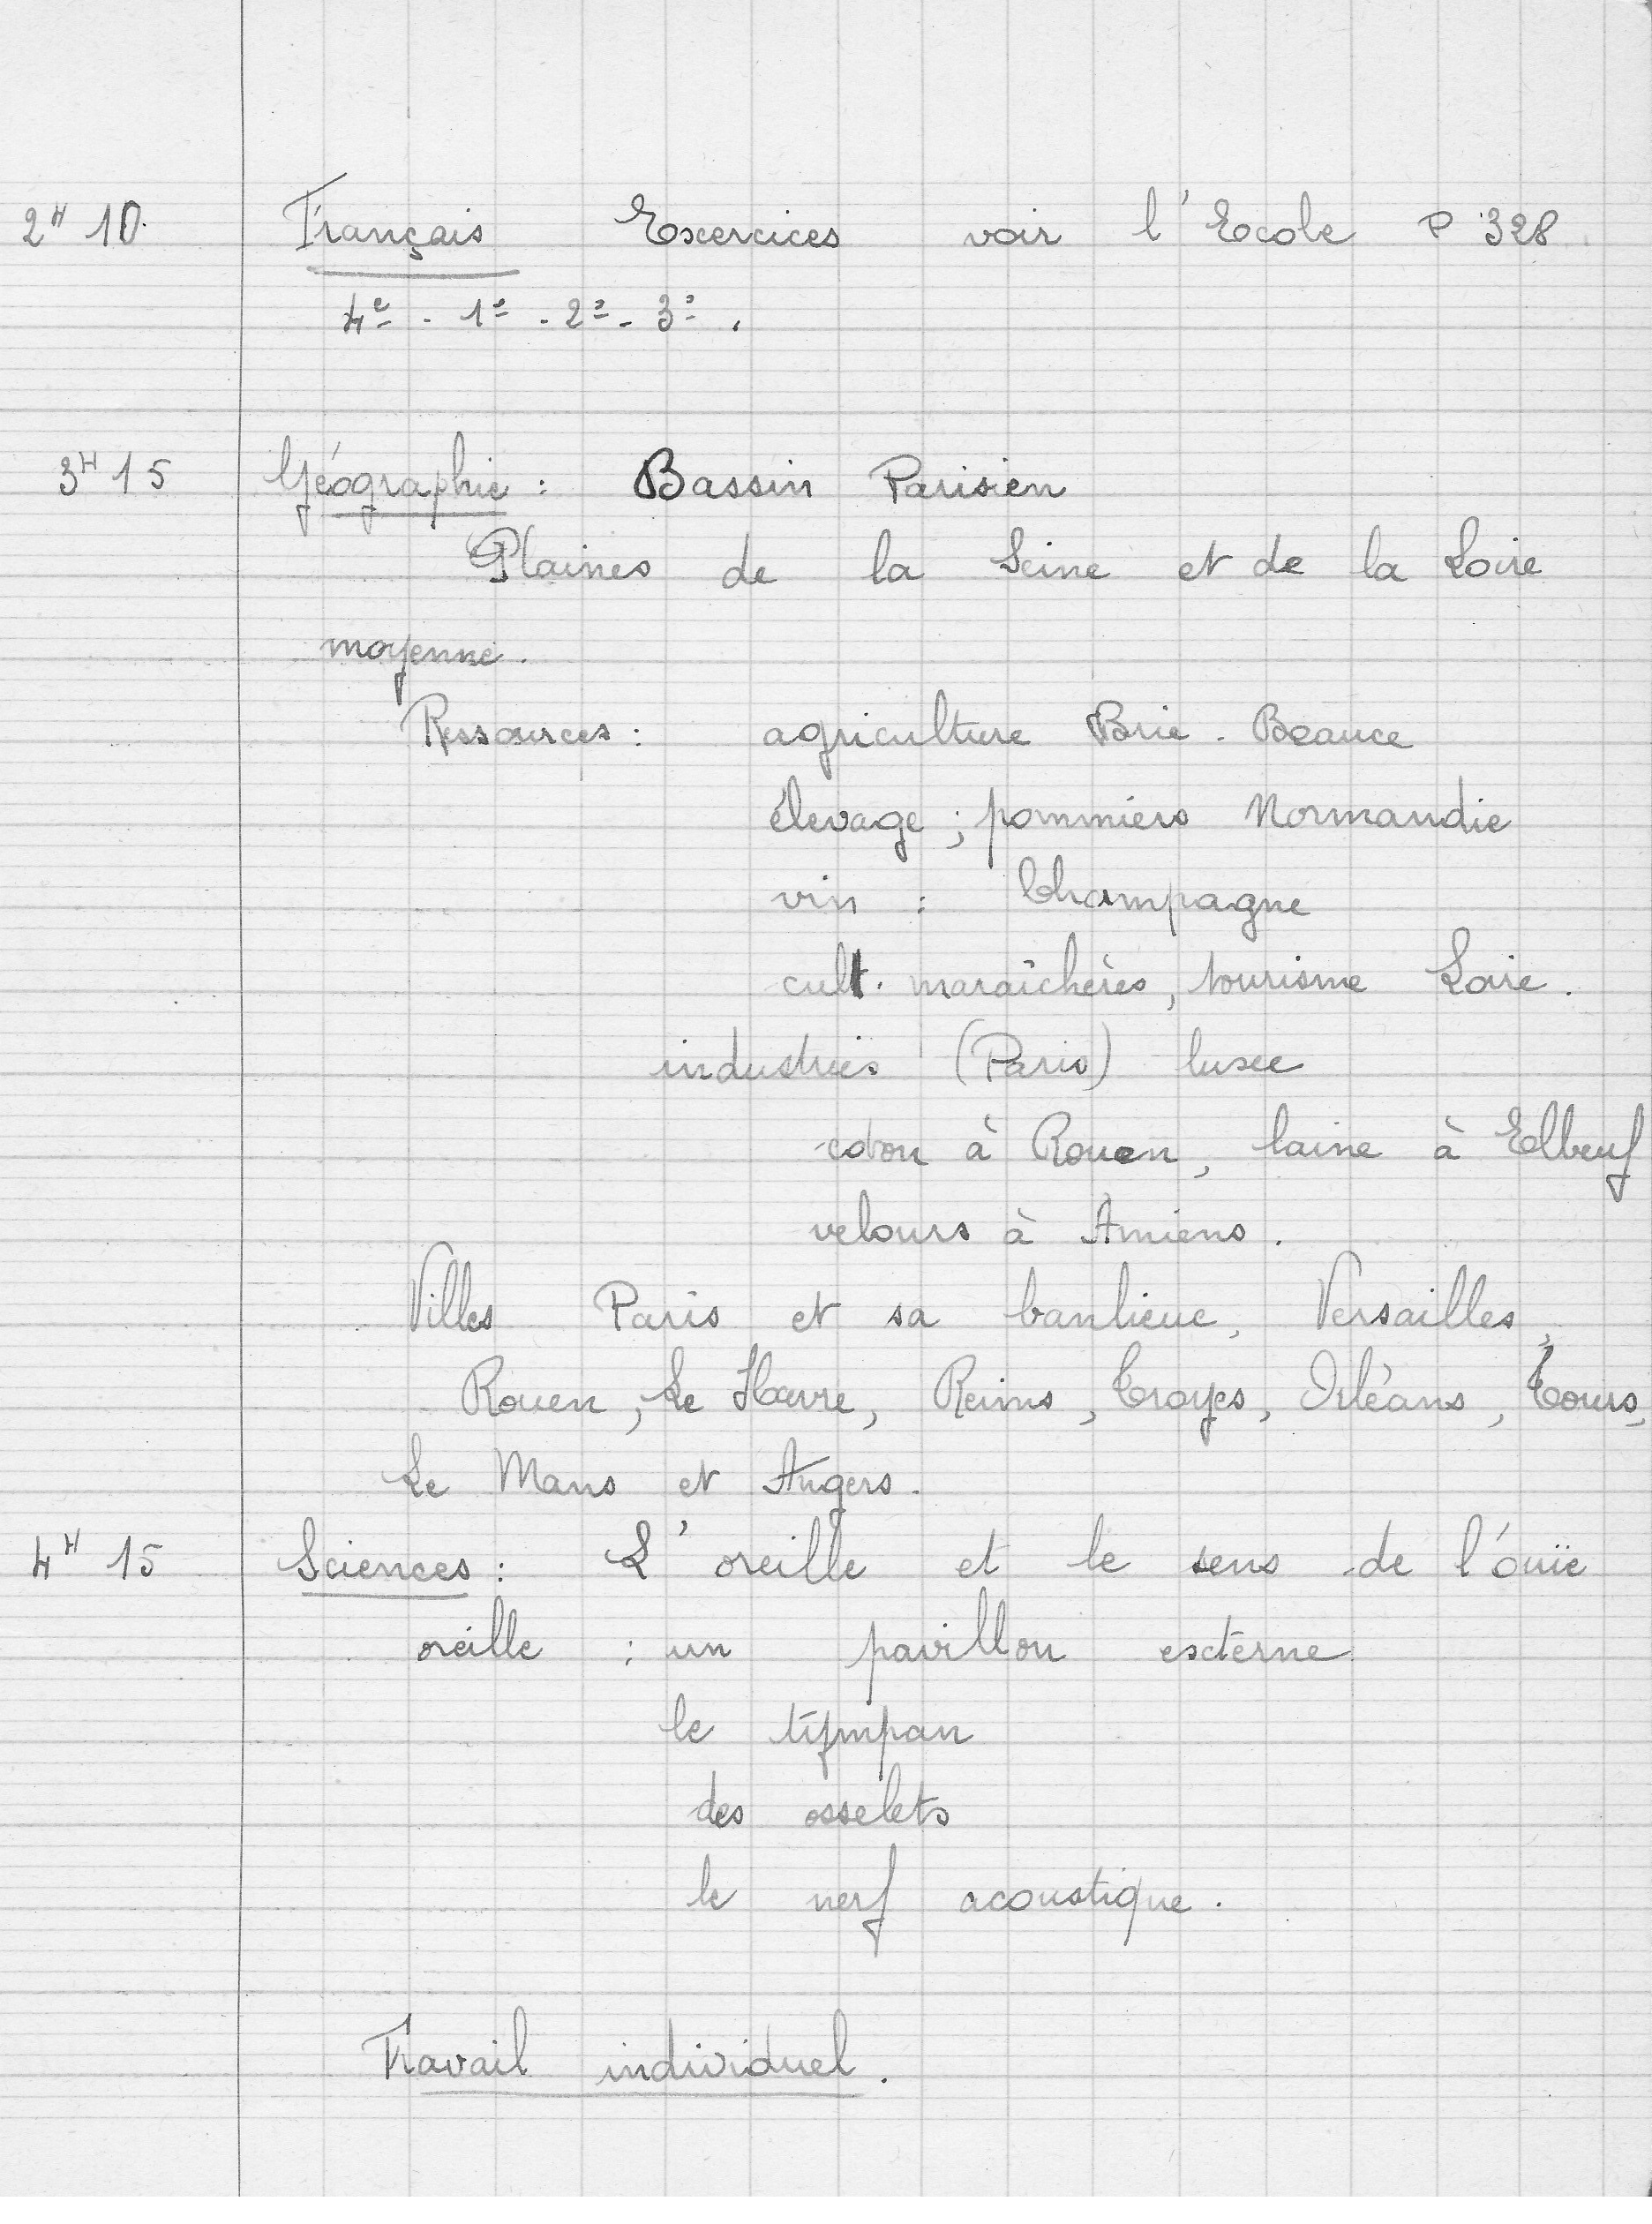 2H 10. Français Exercices voir l'Ecole P 328.
4e - 1e - 2e - 3e.
3H 15 Géographie : Bassin Parisien
Plaines de la Seine et de la Loire
moyenne.
Ressources : agriculture Brie - Beauce
élevage ; pommiers Normandie
vin : Champagne
cult. maraîchères, tourisme Loire.
industries (Paris) luxe
coton à Rouen, laine à Elbeuf
velours à Amiens.
Villes Paris et sa banlieue, Versailles,
Rouen, Le Havre, Reims, Troyes, Orléans, Tours,
Le Mans et Angers.
4H 15 Sciences : L'oreille et le sens de l'ouïe
oreille : un pavillon externe
le tympan
des osselets
le nerf acoustique.
Travail individuel.